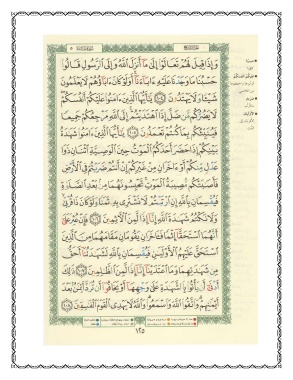 وَإِذَا قِيلَ لَهُمْ تَعَالَوْا۟ إِلَىٰ مَآ أَنزَلَ ٱللَّهُ وَإِلَى ٱلرَّسُولِ قَالُوا۟
حَسْبُنَا مَا وَجَدْنَا عَلَيْهِ ءَابَآءَنَآ أَوَلَوْ كَانَ ءَابَآؤُهُمْ لَا يَعْلَمُونَ
شَيْـًٔا وَلَا يَهْتَدُونَ ١٠٤ يَٰٓأَيُّهَا ٱلَّذِينَ ءَامَنُوا۟ عَلَيْكُمْ أَنفُسَكُمْ
لَا يَضُرُّكُم مَّن ضَلَّ إِذَا ٱهْتَدَيْتُمْ إِلَى ٱللَّهِ مَرْجِعُكُمْ جَمِيعًا
فَيُنَبِّئُكُم بِمَا كُنتُمْ تَعْمَلُونَ ١٠٥ يَٰٓأَيُّهَا ٱلَّذِينَ ءَامَنُوا۟ شَهَٰدَةُ
بَيْنِكُمْ إِذَا حَضَرَ أَحَدَكُمُ ٱلْمَوْتُ حِينَ ٱلْوَصِيَّةِ ٱثْنَانِ ذَوَا
عَدْلٍ مِّنكُمْ أَوْ ءَاخَرَانِ مِنْ غَيْرِكُمْ إِنْ أَنتُمْ ضَرَبْتُمْ فِى ٱلْأَرْضِ
فَأَصَٰبَتْكُم مُّصِيبَةُ ٱلْمَوْتِ تَحْبِسُونَهُمَا مِنۢ بَعْدِ ٱلصَّلَوٰةِ
فَيُقْسِمَانِ بِٱللَّهِ إِنِ ٱرْتَبْتُمْ لَا نَشْتَرِى بِهِۦ ثَمَنًا وَلَوْ كَانَ ذَا قُرْبَىٰ
وَلَا نَكْتُمُ شَهَٰدَةَ ٱللَّهِ إِنَّآ إِذًا لَّمِنَ ٱلْءَاثِمِينَ ١٠٦ فَإِنْ عُثِرَ عَلَىٰٓ
أَنَّهُمَا ٱسْتَحَقَّآ إِثْمًا فَـَٔاخَرَانِ يَقُومَانِ مَقَامَهُمَا مِنَ ٱلَّذِينَ
ٱسْتَحَقَّ عَلَيْهِمُ ٱلْأَوْلَيَٰنِ فَيُقْسِمَانِ بِٱللَّهِ لَشَهَٰدَتُنَآ أَحَقُّ
مِن شَهَٰدَتِهِمَا وَمَا ٱعْتَدَيْنَآ إِنَّآ إِذًا لَّمِنَ ٱلظَّٰلِمِينَ ١٠٧ ذَٰلِكَ
أَدْنَىٰٓ أَن يَأْتُوا۟ بِٱلشَّهَٰدَةِ عَلَىٰ وَجْهِهَآ أَوْ يَخَافُوٓا۟ أَن تُرَدَّ أَيْمَٰنٌۢ بَعْدَ
أَيْمَٰنِهِمْ وَٱتَّقُوا۟ ٱللَّهَ وَٱسْمَعُوا۟ وَٱللَّهُ لَا يَهْدِى ٱلْقَوْمَ ٱلْفَٰسِقِينَ ١٠٨
١٢٥